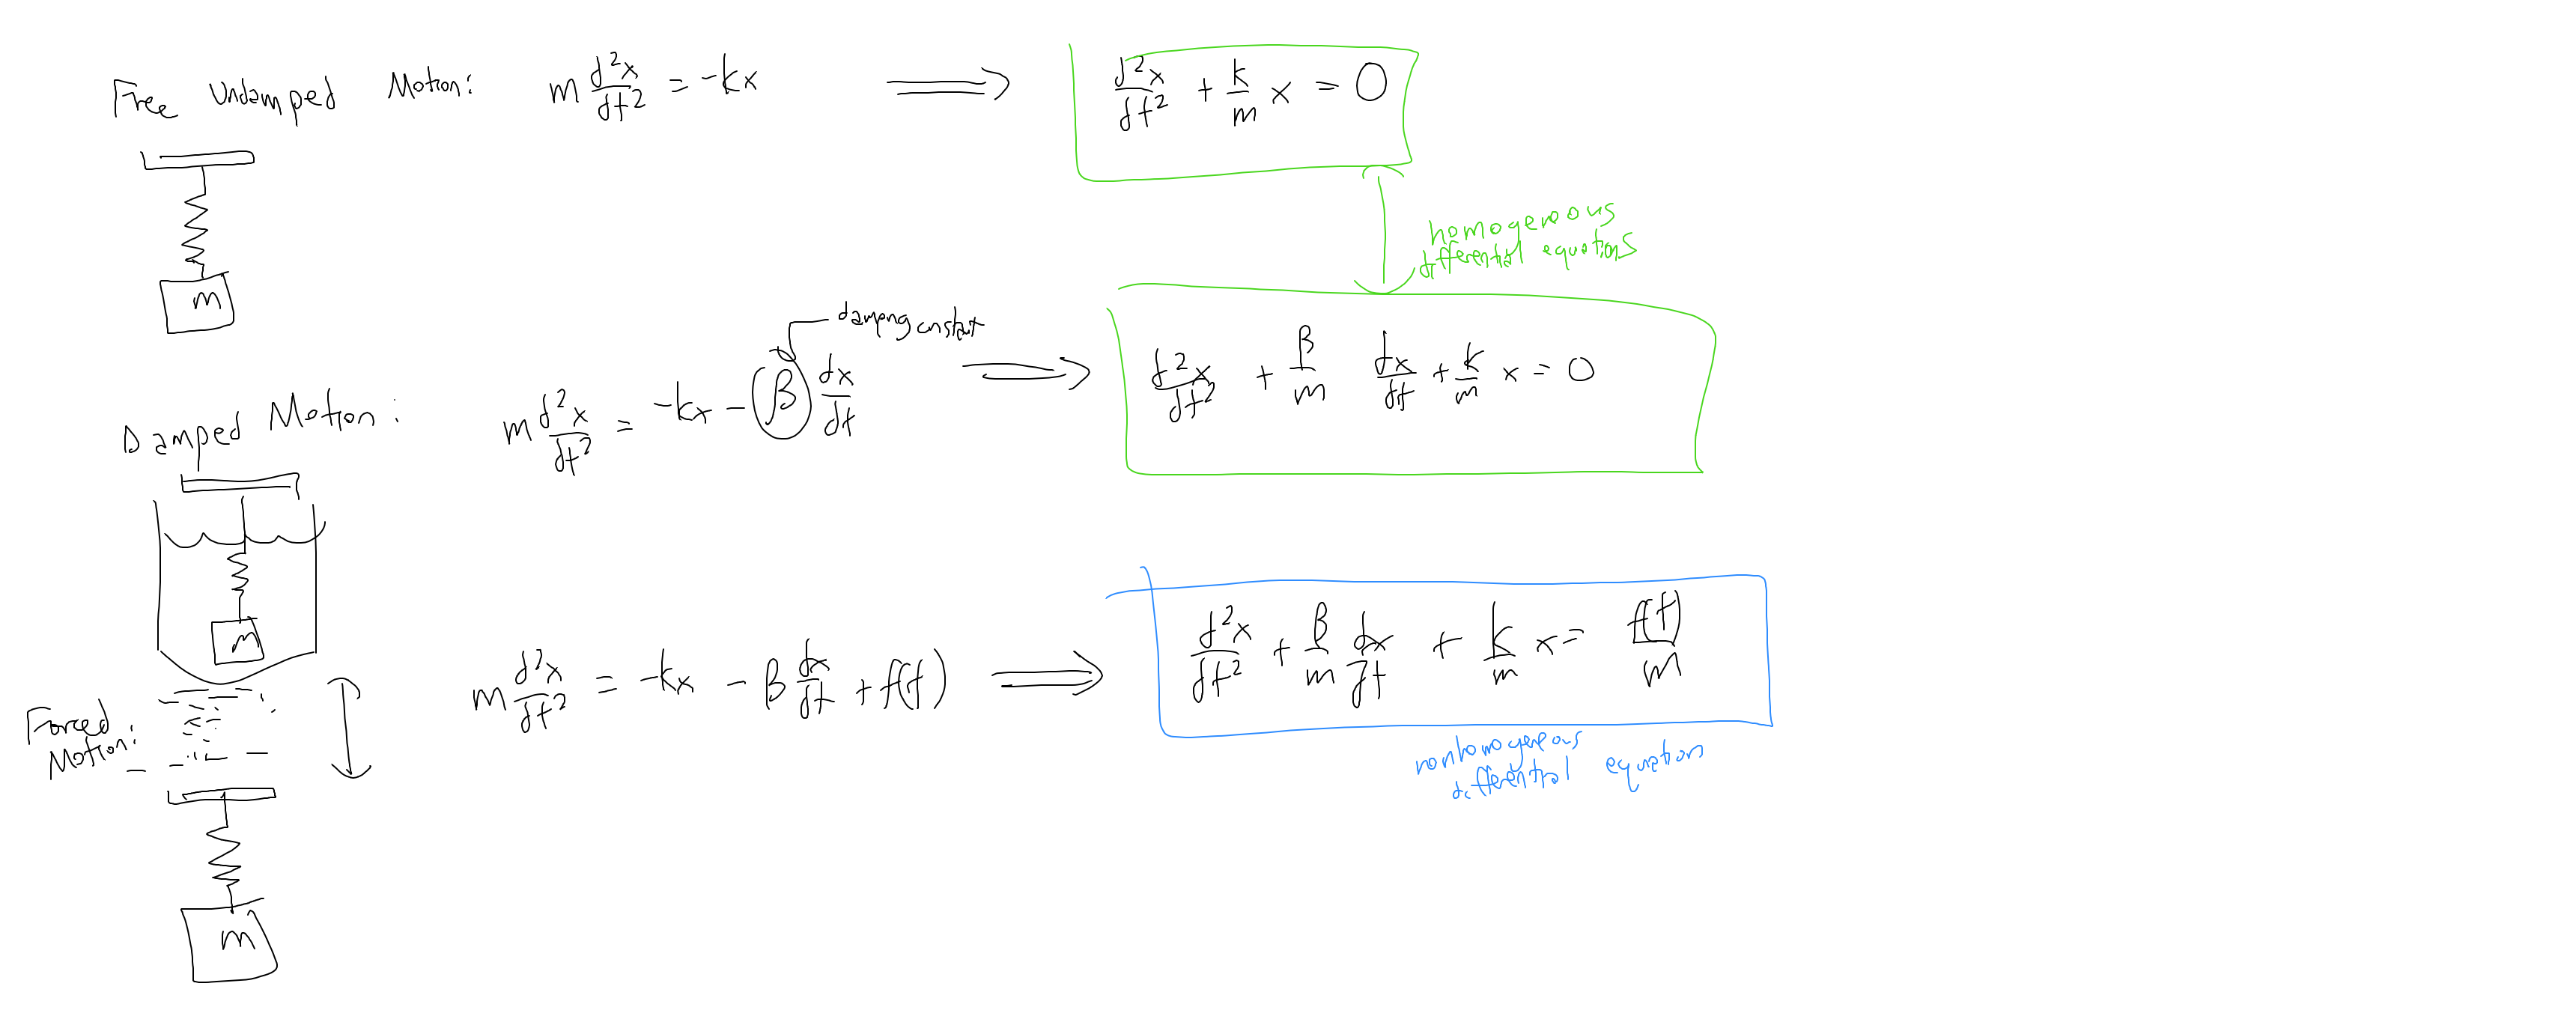 Free Undamped Motion: m d²x/dt² = -kx ⟹ d²x/dt² + k/m x = 0
m
homogeneous
differential equations
damping constant
Damped Motion: m d²x/dt² = -kx - β dx/dt ⟹ d²x/dt² + β/m dx/dt + k/m x = 0
m
Forced
Motion: m d²x/dt² = -kx - β dx/dt + f(t) ⟹ d²x/dt² + β/m dx/dt + k/m x = f(t)/m
nonhomogeneous
differential equations
m